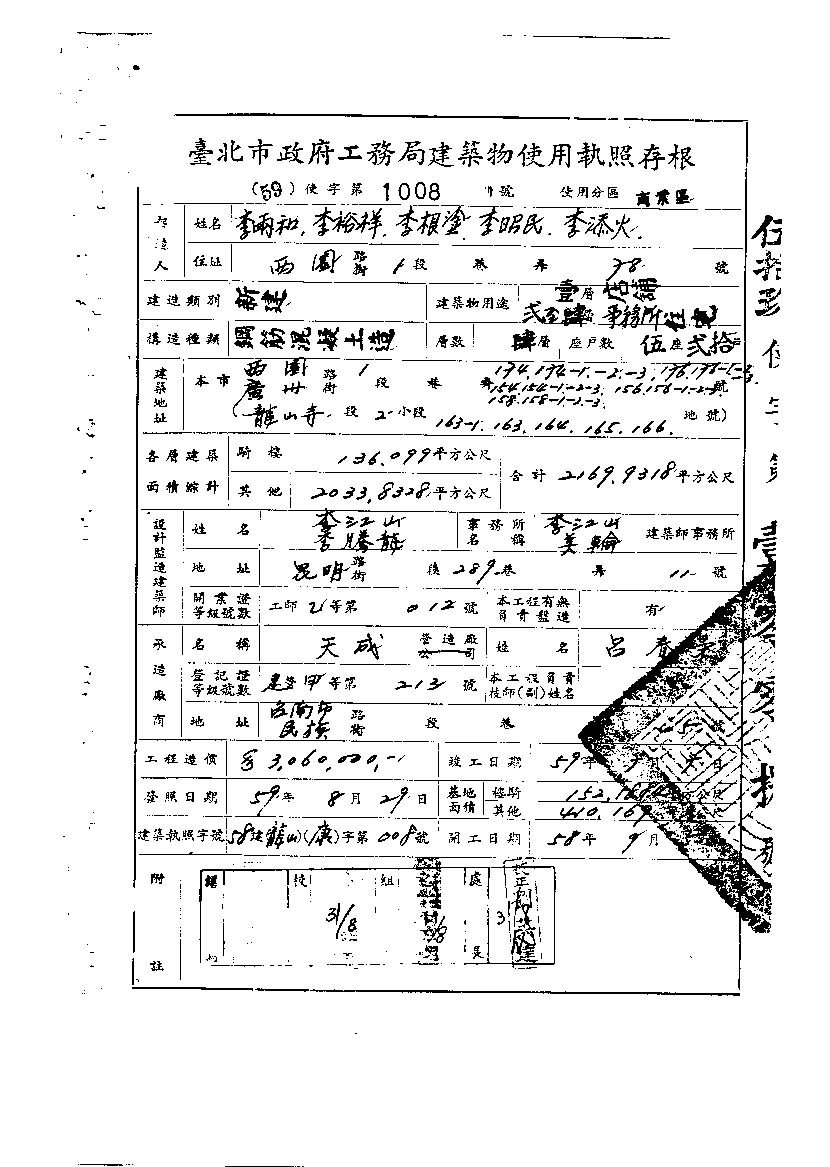 臺北市政府工務局建築物使用執照存根
(59)使字第1008號 使用分區 商業區
造人 姓名 李兩和.李裕祥.李根塗.李昭民.李添火.
住址 西園路街1段 巷 弄 28 號
建造類別 新建 建築物用途 壹層店舖
貳至肆層事務所住宅
構造種類 鋼筋混凝土造 層數 肆層 座戶數 伍座貳拾戶
建築地址 本市 西園廣州路街1段 巷 弄 194.194-1.-2.-3. 196.196-1.-2-3.
154.154-1-2-3. 156.156-1-2-3.號
158.158-1-2-3.
(龍山寺段2小段 163-1.163.164.165.166.地號)
各層建築面積綜計 騎樓 136.099平方公尺 合計2169.9318平方公尺
其他 2033.8328平方公尺
設計監造建築師 姓名 李江山
李騰龍 事務所名稱 李江山
美輪 建築師事務所
地址 昆明路街 後289巷 弄 11 號
開業證等級號數 工師 等第 012號 本工程有無負責監造 有
承造廠商 名稱 天成 營造廠公司 姓名 呂春
登記證等級號數 建登甲等第213號 本工程負責技師(副)姓名
地址 台南市民族路街 段 巷 45號
工程造價 $3,060,000,- 竣工日期 59年 月 日
發照日期 59年8月29日 基地面積 樓 152. 公尺
其他 410.169
建築執照字號 58建(龍山)(康)字第008號 開工日期 58年9月
附註
校 組 處
長
31/8